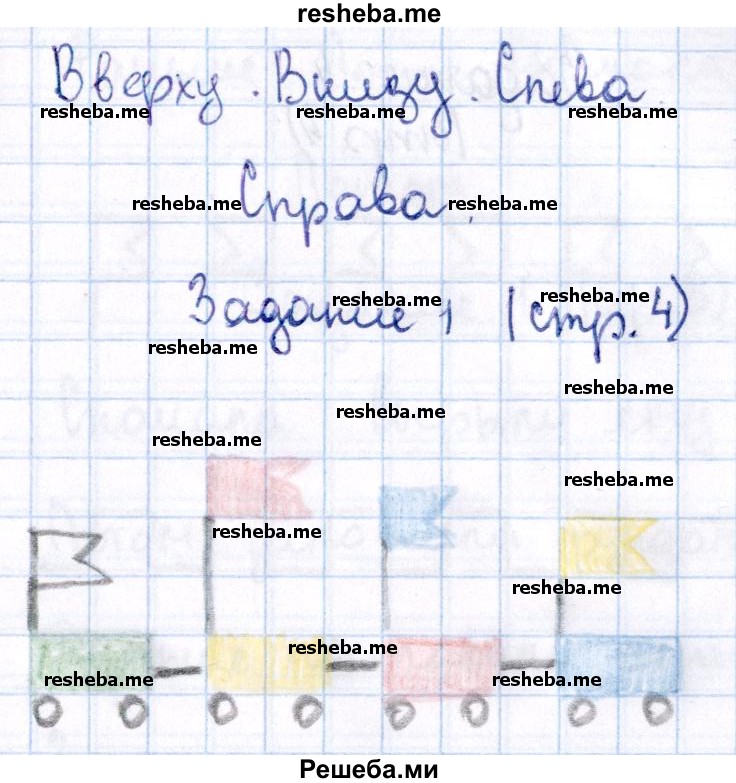 resheba.me
Вверху. Внизу. Слева.
resheba.me resheba.me resheba.me
Справа.
resheba.me resheba.me
Задание 1 (стр. 4)
resheba.me resheba.me
resheba.me
resheba.me
resheba.me
resheba.me
resheba.me
resheba.me
resheba.me
resheba.me
resheba.me resheba.me
Решеба.ми